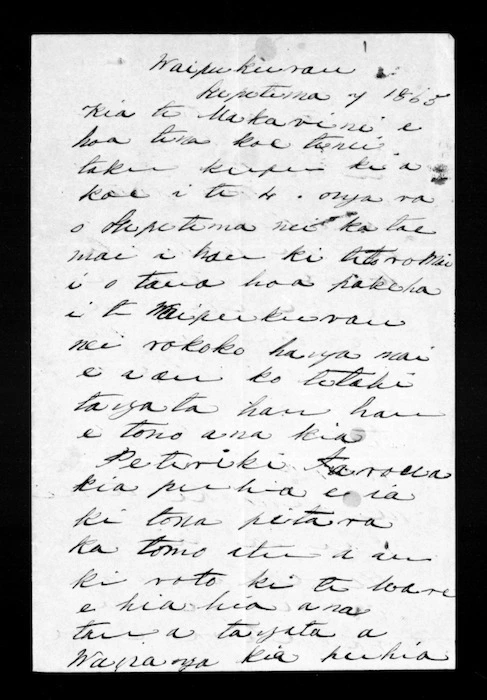 Waipukurau
Hepetema 7 1865
Kia te Makarini e
hoa tena koe tenei
taku kupu ki a
koe i te 4 . onga ra
o Hepetema nei ka tae
mai i hau ki te
i o taua hoa pakeha
i te Waipukurau
nei rokoko hanga mai
e a au ko tetahi
tangata hau hau
e tono ana kia
Peteriki
kia puhia e ia
ki tona pitara
ka tomo atu a au
ki roto ki te ware
e hia hia ana
taua tangata a
kia puhia